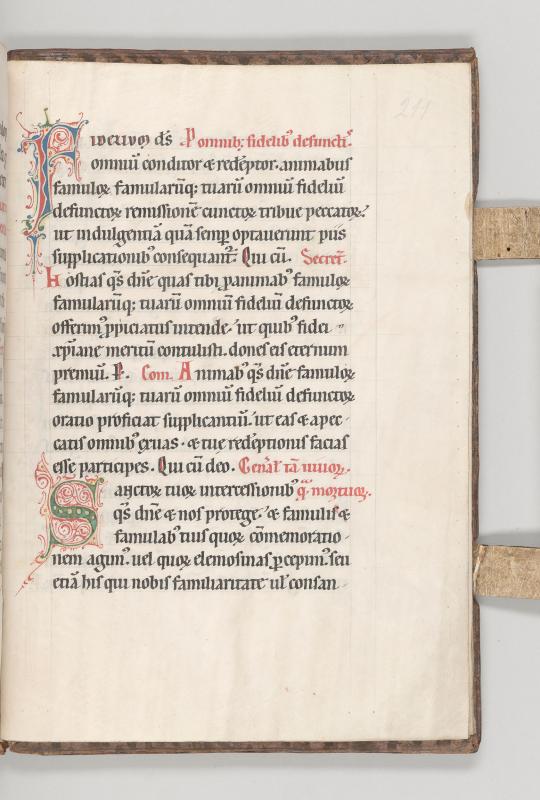 211
Fidelium ds̄ P omnibꝫ fidelibꝰ defunctꝭ.
omniū conditor ⁊ redēptor. animabus
famuloꝝ famularūqꝫ tuarū omniū fideliū
defunctoꝝ remissionē cunctoꝝ tribue peccatoꝝ.
ut indulgentiā quā semꝑ optauerunt piis
supplicationibꝰ consequant᷑. Qui cū. Secret̄.
Hostias qs̄ dn̄e quas tibi ꝓ animabꝰ famuloꝝ
famularūqꝫ tuarū omniū fideliū defunctoꝝ
offerimꝰ ꝓpiciatus intende. ut quibꝰ fidei
xp̄iane meritū contulisti. dones eis eternum
premiū. P. Com. Animabꝰ qs̄ dn̄e famuloꝝ
famularūqꝫ tuarū omniū fideliū defunctoꝝ
oratio proficiat supplicantiū. ut eas ⁊ a pec-
catis omnibꝰ exuas. ⁊ tue redēptionis facias
esse participes. Qui cū deo. Gen̄al' tā uiuoꝝ.
Sanctoꝝ tuoꝝ intercessionibꝰ q̄ mortuoꝝ.
qs̄ dn̄e ⁊ nos protege. ⁊ famulis ⁊
famulabꝰ tuis quoꝝ cōmemoratio-
nem agimꝰ. uel quoꝝ elemosinas ꝑcepimꝰ. seu
etiā his qui nobis familiaritate ul' consan